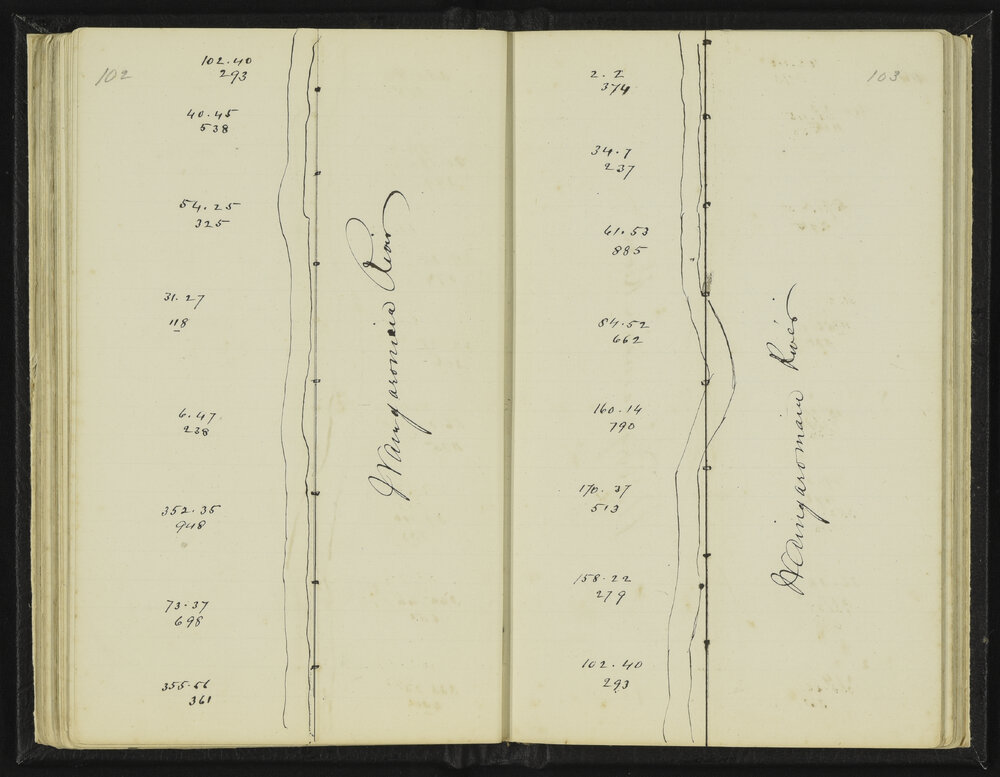 102
102.40
293
40.45
538
54.25
325
31.27
118
6.47
238
352.35
948
73.37
698
355.56
361
Waingaromia River
103
2.2
374
34.7
237
61.53
885
84.52
662
160.14
790
170.37
513
158.22
279
102.40
293
Waingaromia River